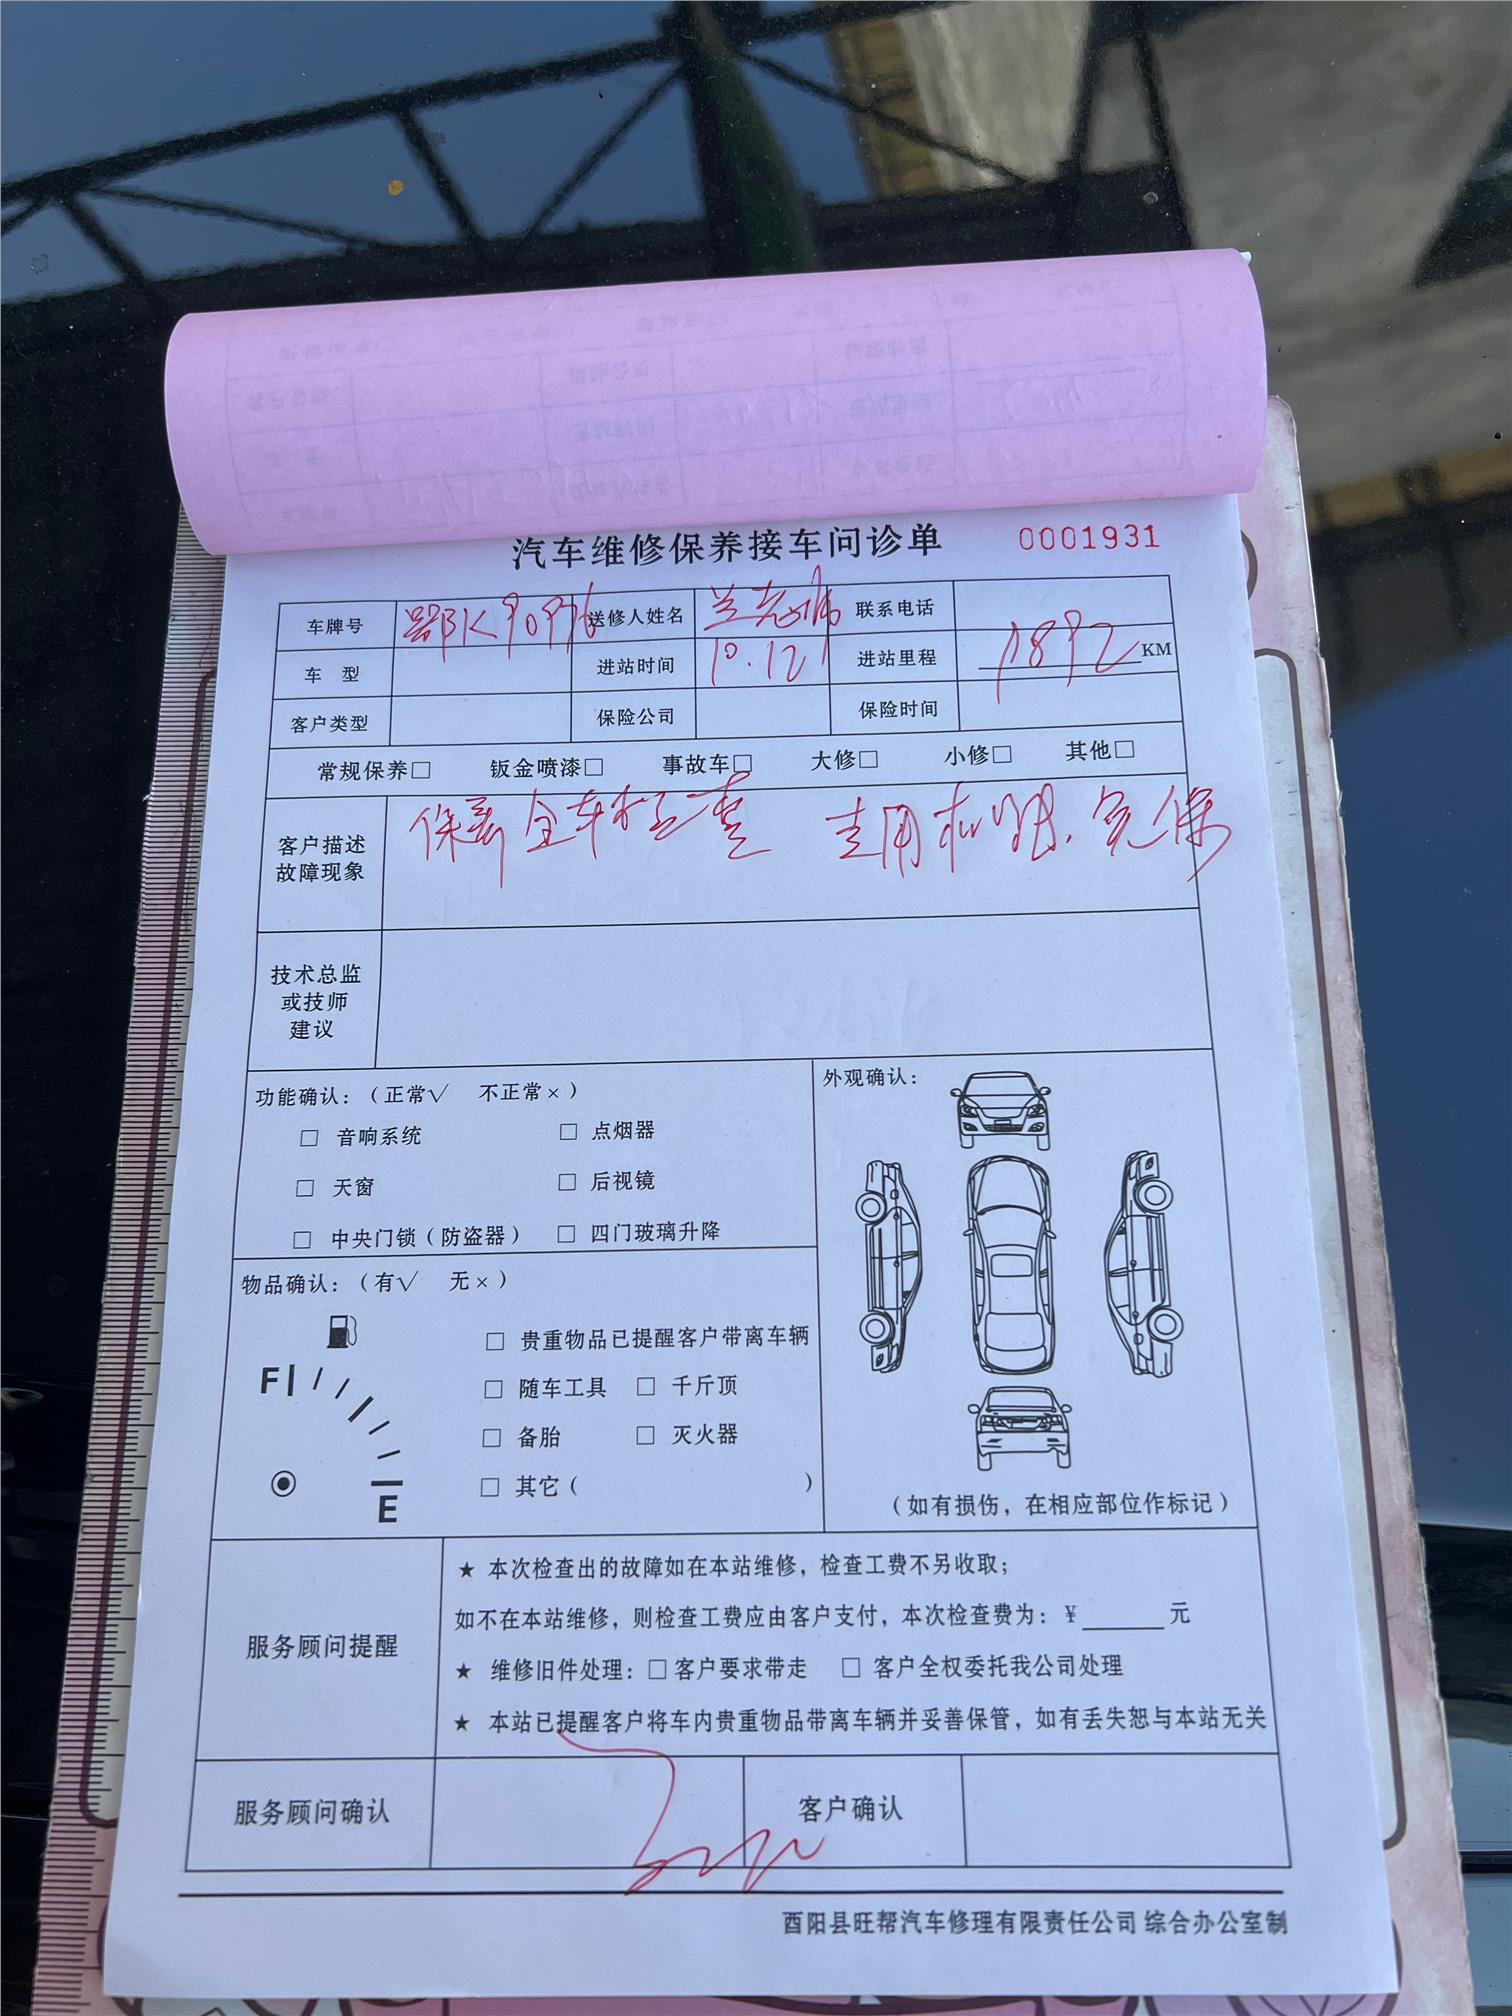 汽车维修保养接车问诊单 0001931
车牌号 送修人姓名 联系电话
车 型 进站时间 10.12 进站里程 KM
客户类型 保险公司 保险时间
常规保养□ 钣金喷漆□ 事故车□ 大修□ 小修□ 其他□
客户描述
故障现象
保养 全车检查 专用机油. 完保
技术总监
或技师
建议
功能确认：（正常√ 不正常×）
□ 音响系统 □ 点烟器
□ 天窗 □ 后视镜
□ 中央门锁（防盗器） □ 四门玻璃升降
外观确认：
（如有损伤，在相应部位作标记）
物品确认：（有√ 无×）
F
E
□ 贵重物品已提醒客户带离车辆
□ 随车工具 □ 千斤顶
□ 备胎 □ 灭火器
□ 其它（ ）
服务顾问提醒
★ 本次检查出的故障如在本站维修，检查工费不另收取；
如不在本站维修，则检查工费应由客户支付，本次检查费为：￥______元
★ 维修旧件处理：□客户要求带走 □ 客户全权委托我公司处理
★ 本站已提醒客户将车内贵重物品带离车辆并妥善保管，如有丢失恕与本站无关
服务顾问确认 客户确认
酉阳县旺帮汽车修理有限责任公司 综合办公室制